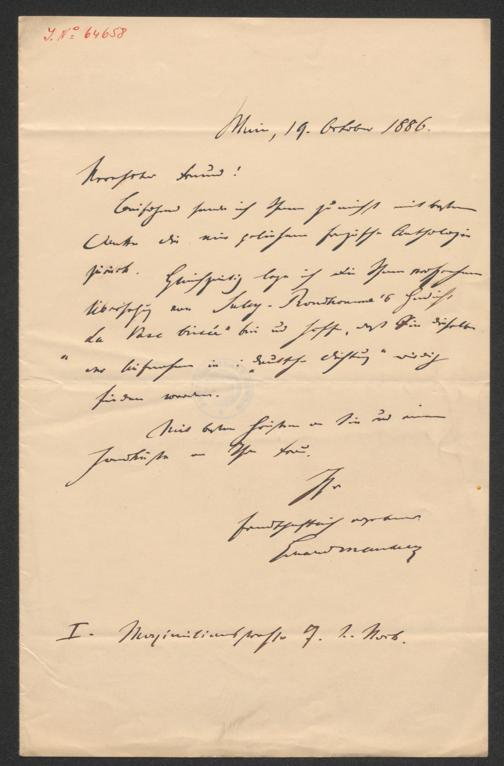 J. No 64658
Wien, 19. October 1886.
Verehrter Freund!
Beifolgend sende ich Ihnen zunächst mit bestem
Danke die mir geliehene französische Anthologie
zurück. Gleichzeitig lege ich die Ihnen versprochene
Übersetzung von Sully-Prudhomme's Gedicht
"La Vase brisée" bei und hoffe, daß Sie dieselbe
der Aufnahme in die "Deutsche Dichtung" würdig
finden werden.
Mit besten Grüßen an Sie und einem
Handkuß an Ihre Frau.
Ihr
freundschaftlich ergebener
I. Maximilianstrasse 7. 2. Stock.